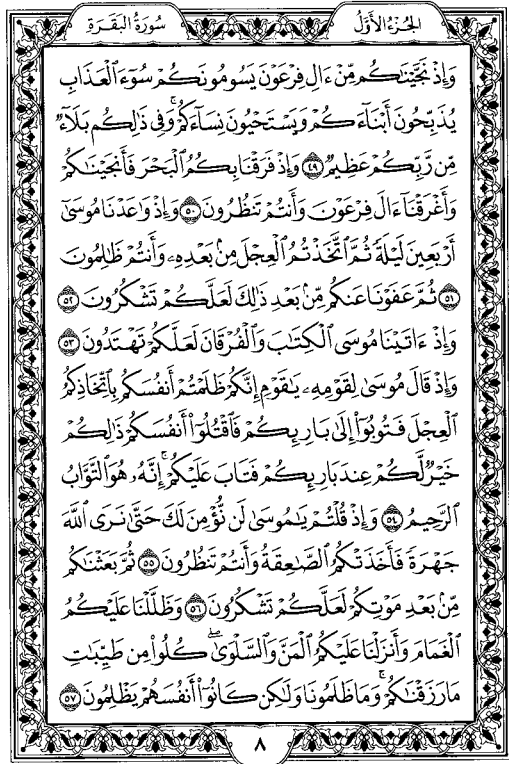 سُورَةُ البَقَرَةِ الجُزءُ الأَوَّلُ
وَإِذْ نَجَّيْنَٰكُم مِّنْ ءَالِ فِرْعَوْنَ يَسُومُونَكُمْ سُوٓءَ ٱلْعَذَابِ
يُذَبِّحُونَ أَبْنَآءَكُمْ وَيَسْتَحْيُونَ نِسَآءَكُمْ ۚ وَفِى ذَٰلِكُم بَلَآءٌ
مِّن رَّبِّكُمْ عَظِيمٌ ٤٩ وَإِذْ فَرَقْنَا بِكُمُ ٱلْبَحْرَ فَأَنجَيْنَٰكُمْ
وَأَغْرَقْنَآ ءَالَ فِرْعَوْنَ وَأَنتُمْ تَنظُرُونَ ٥٠ وَإِذْ وَٰعَدْنَا مُوسَىٰٓ
أَرْبَعِينَ لَيْلَةً ثُمَّ ٱتَّخَذْتُمُ ٱلْعِجْلَ مِنۢ بَعْدِهِۦ وَأَنتُمْ ظَٰلِمُونَ
٥١ ثُمَّ عَفَوْنَا عَنكُم مِّنۢ بَعْدِ ذَٰلِكَ لَعَلَّكُمْ تَشْكُرُونَ ٥٢
وَإِذْ ءَاتَيْنَا مُوسَى ٱلْكِتَٰبَ وَٱلْفُرْقَانَ لَعَلَّكُمْ تَهْتَدُونَ ٥٣
وَإِذْ قَالَ مُوسَىٰ لِقَوْمِهِۦ يَٰقَوْمِ إِنَّكُمْ ظَلَمْتُمْ أَنفُسَكُم بِٱتِّخَاذِكُمُ
ٱلْعِجْلَ فَتُوبُوٓا۟ إِلَىٰ بَارِئِكُمْ فَٱقْتُلُوٓا۟ أَنفُسَكُمْ ذَٰلِكُمْ
خَيْرٌ لَّكُمْ عِندَ بَارِئِكُمْ فَتَابَ عَلَيْكُمْ ۚ إِنَّهُۥ هُوَ ٱلتَّوَّابُ
ٱلرَّحِيمُ ٥٤ وَإِذْ قُلْتُمْ يَٰمُوسَىٰ لَن نُّؤْمِنَ لَكَ حَتَّىٰ نَرَى ٱللَّهَ
جَهْرَةً فَأَخَذَتْكُمُ ٱلصَّٰعِقَةُ وَأَنتُمْ تَنظُرُونَ ٥٥ ثُمَّ بَعَثْنَٰكُم
مِّنۢ بَعْدِ مَوْتِكُمْ لَعَلَّكُمْ تَشْكُرُونَ ٥٦ وَظَلَّلْنَا عَلَيْكُمُ
ٱلْغَمَامَ وَأَنزَلْنَا عَلَيْكُمُ ٱلْمَنَّ وَٱلسَّلْوَىٰ ۖ كُلُوا۟ مِن طَيِّبَٰتِ
مَا رَزَقْنَٰكُمْ ۖ وَمَا ظَلَمُونَا وَلَٰكِن كَانُوٓا۟ أَنفُسَهُمْ يَظْلِمُونَ ٥٧
٨